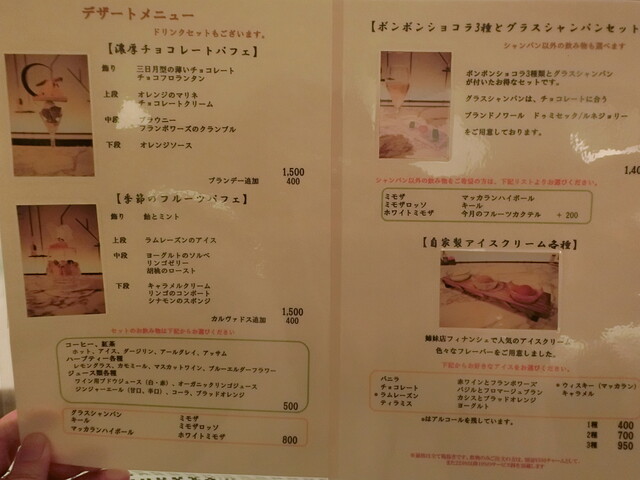 デザートメニュー
ドリンクセットもございます。
【濃厚チョコレートパフェ】
飾り 三日月型の薄いチョコレート
チョコフロランタン
上段 オレンジのマリネ
チョコレートクリーム
中段 ブラウニー
フランボワーズのクランブル
下段 オレンジソース
1,500
ブランデー追加 400
【季節のフルーツパフェ】
飾り 飴とミント
上段 ラムレーズンのアイス
中段 ヨーグルトのソルベ
リンゴゼリー
胡桃のロースト
下段 キャラメルクリーム
リンゴのコンポート
シナモンのスポンジ
1,500
カルヴァドス追加 400
セットのお飲み物は下記からお選びください
コーヒー、紅茶
ホット、アイス、ダージリン、アールグレイ、アッサム
ハーブティー各種
レモングラス、カモミール、マスカットワイン、ブルーエルダーフラワー
ジュース類各種
ワイン用ブドウジュース（白・赤）、オーガニックリンゴジュース
ジンジャーエール（甘口、辛口）、コーラ、ブラッドオレンジ
500
グラスシャンパン ミモザ
キール ミモザロッソ
マッカランハイボール ホワイトミモザ 800
【ボンボンショコラ3種とグラスシャンパンセット
シャンパン以外の飲み物も選べます
ボンボンショコラ3種類とグラスシャンパン
が付いたお得なセットです。
グラスシャンパンは、チョコレートに合う
ブランドノワール ドゥミセック/ルネジョリー
をご用意しております。
1,40
シャンパン以外の飲み物をご希望の方は、下記リストよりお選びください。
ミモザ マッカランハイボール
ミモザロッソ キール
ホワイトミモザ 今月のフルーツカクテル + 200
【自家製アイスクリーム各種】
姉妹店フィナンシェで人気のアイスクリーム
色々なフレーバーをご用意しました。
下記からお好きなアイスをお選びください。
バニラ 赤ワインとフランボワーズ *ウィスキー（マッカラン）
チョコレート バジルとフロマージュブラン キャラメル
*ラムレーズン カシスとブラッドオレンジ
ティラミス ヨーグルト
*はアルコールを残しています。
1種 400
2種 700
3種 950